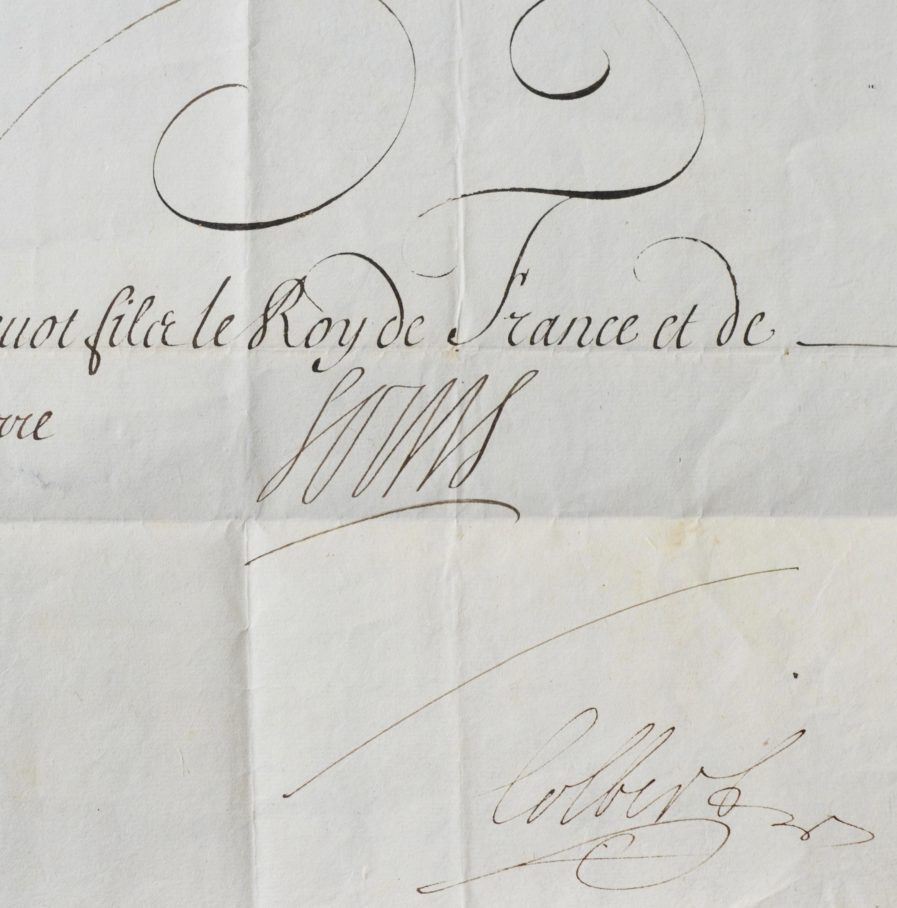 uot filz le Roy de France et de
rre
Louis
Colbert